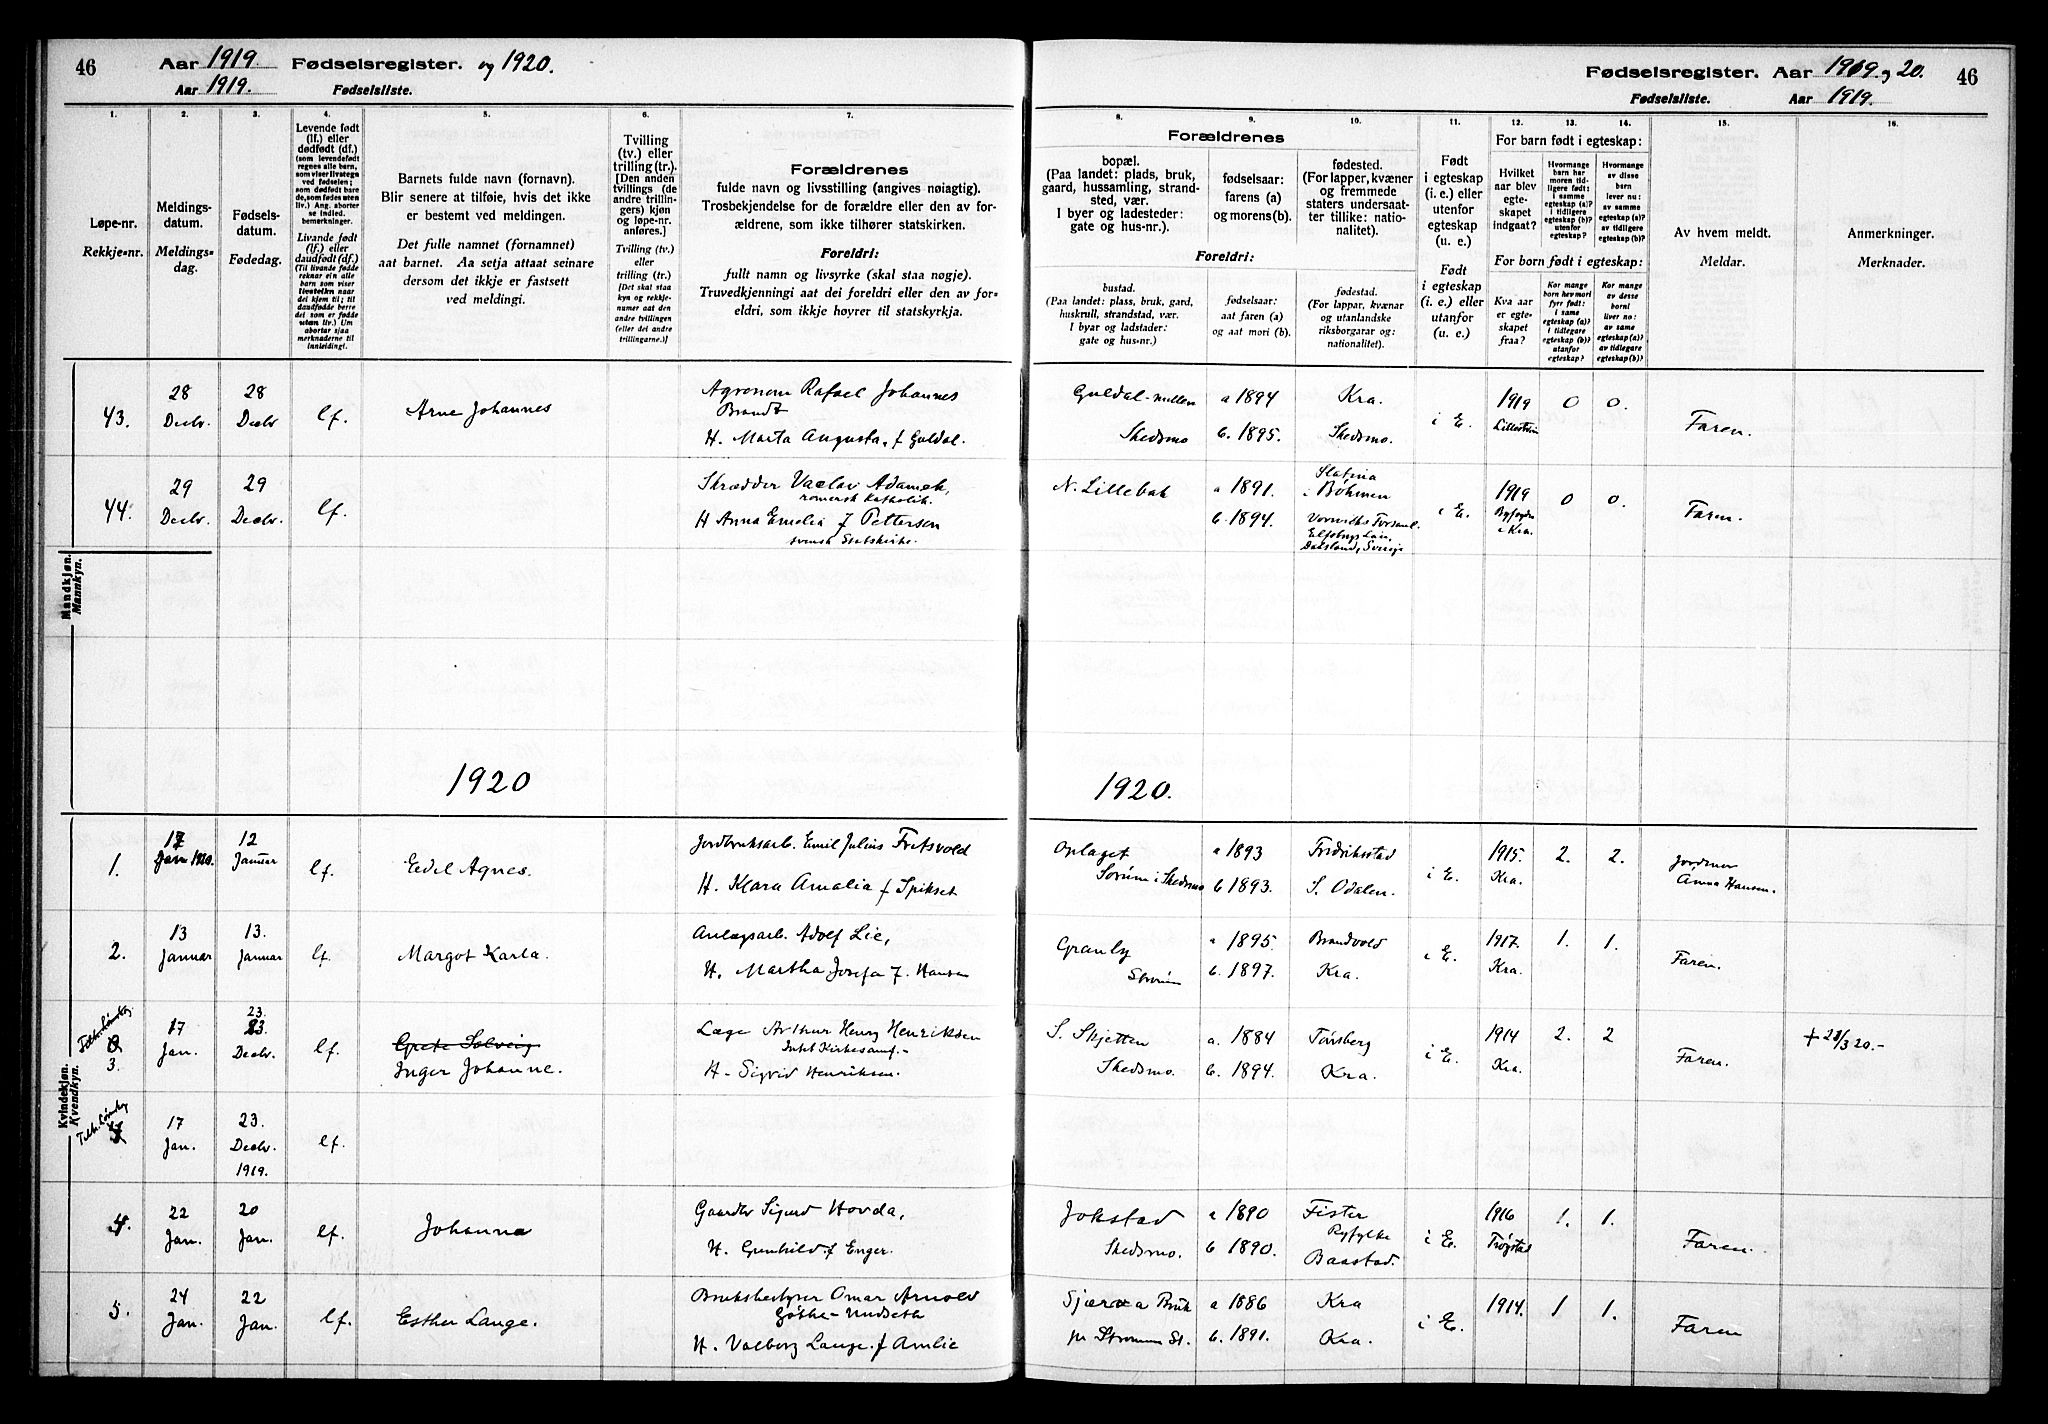 46 Aar 1919. Fødselsregister. og 1920.
Aar 1919. Fødselsliste.
Fødselsregister. Aar 1919 og 20. 46
Fødselsliste. Aar 1919.
1. 2. 3. 4. 5. 6. 7. 8. 9. 10. 11. 12. 13. 14. 15. 16.
Løpe-nr.
Rekkje-nr.
Meldings-
datum.
Meldings-
dag.
Fødsels-
datum.
Fødedag.
Levende født
(lf.) eller
dødfødt (df.)
(som levendefødt
regnes alle barn,
som viser livstegn
ved fødselen;
som dødfødt bare
de, som fødes uten
liv.) Ang. aborter
se indled.
bemerkninger.
Livande født
(lf.) eller
daudfødt (df.)
(Til livande fødde
reknar ein alle
barn som viser
livsteikn naar
dei kjem til; til
daudfødde berre
dei som er fødde
utan liv.) Um
abortar sjaa
merknaderne til
innleidingi.
Barnets fulde navn (fornavn).
Blir senere at tilføie, hvis det ikke
er bestemt ved meldingen.
Det fulle namnet (fornamnet)
aat barnet. Aa setja attaat seinare
dersom det ikkje er fastsett
ved meldingi.
Tvilling
(tv.) eller
trilling (tr.).
[Den anden
tvillings (de
andre trillin-
gers) kjøn
og løpe-nr.
anføres.]
Tvilling (tv.)
eller
trilling (tr.)
[Det skal staa
kyn og rekkje-
numer aat den
andre tvillingen
(eller dei andre
trillingarne.)]
Forældrenes
fulde navn og livsstilling (angives nøiagtig).
Trosbekjendelse for de forældre eller den av for-
ældrene, som ikke tilhører statskirken.
Foreldri:
fullt namn og livsyrke (skal staa nøgje).
Truvedkjenningi aat dei foreldri eller den av for-
eldri, som ikkje høyrer til statskyrkja.
Forældrenes
bopæl.
(Paa landet: plads, bruk,
gaard, hussamling, strand-
sted, vær.
I byer og ladesteder:
gate og hus-nr.).
fødselsaar:
farens (a)
og morens (b).
fødested.
(For lapper, kvæner
og fremmede
staters undersaat-
ter tillike: natio-
nalitet).
Foreldri:
bustad.
(Paa landet: plass, bruk, gard,
huskrull, strandstad, vær.
I byar og ladstader:
gate og hus-nr.)
fødselsaar:
aat faren (a)
og aat mori (b).
fødestad.
(For lappar, kvænar
og utanlandske
riksborgarar og:
nationalitet).
Født
i egteskap
(i. e.) eller
utenfor
egteskap
(u. e.)
Født
i egteskap
(i. e.) eller
utanfor
(u. e.)
For barn født i egteskap:
Hvilket
aar blev
egte-
skapet
indgaat?
Hvormange
barn har
moren tid-
ligere født:
i samme
egteskap (a)?
i tidligere
egteskap (b)?
utenfor
egteskap?
Hvormange
av disse
barn
lever nu:
av samme
egteskap (a)?
av tidligere
egteskap (b)?
For barn født i egteskap:
Kva aar
er egte-
skapet
fraa?
Kor mange
born hev mori
fyrr født:
i same
egteskap (a)?
i tidlegare
egteskap (b)?
utanfor
egteskap?
Kor mange
av desse
borni
liver no:
av same
egteskap (a)?
av tidlegare
egteskap (b)?
Av hvem meldt.
Meldar.
Anmerkninger.
Merknader.
Mandkjøn.
Mannkyn.
43. 28 Decbr. 28 Decbr lf. Arne Johannes
Agronom Rafael Johannes
Brandt
H. Marta Augusta, f Guldal.
Guldal-møllen Skedsmo a 1894 b. 1895. Kra. Skedsmo. i E. 1919 Lillestrøm 0 0. Faren.
44. 29 Decbr. 29 Decbr. lf.
Skrædder Vaclav Adamek,
romersk katholik.
H Anna Emelia f Pettersen
svensk Statskirke.
N. Lillebak a 1891. b. 1894. Slatina i Bøhmen
i E. 1919 i Kra. 0 0. Faren.
1920 1920.
Kvindekjøn.
Kvendkyn.
1. 17 Jan 1920. 12 Januar lf. Edel Agnes.
Jordbruksarb. Emil Julius Fretsvold
H. Klara Amalia f Spikset
Oplaget Sørum i Skedsmo a 1893 b 1893. Fredrikstad S. Odalen. i E. 1915. Kra. 2. 2. Jordmor Anna Hansen.
2. 13 Januar 13. Januar lf. Margot Karla.
Anlægsarb. Adolf Lie,
H. Martha Josefa f. Hansen
Granly Strøm a 1895. b. 1897. Brandvold Kra. i E. 1917. Kra. 1. 1. Faren.
3. 17 Jan. 23. Decbr. lf. Grete Solveig
Inger Johanne.
Læge Arthur Henry Henriksen
Intet Kirkesamf.-
H. Sigrid Henriksen.
S. Skjetten Skedsmo. a. 1884 b. 1894. Tønsberg Kra. i E. 1914 Kra. 2. 2 Faren. + 28/3 20.-
17 Jan. 23. Decbr. 1919. lf.
4. 22 Jan. 20 Jan. lf. Johanna
Gaardbr Sigurd Hovda,
H. Gunhild f Enger.
Jokstad Skedsmo. a 1890 b 1890. Fister Ryfylke Baastad. i E. 1916 Trøgstad 1. 1. Faren.
5. 24 Jan. 22 Jan. lf. Esther Lange.
Bruksbestyrer Omar Arnold
Göthe-Undseth
H. Valborg Lange f Amlie
Sjærva Bruk pr Strømmen St. a 1886 b. 1891. Kra Kra. i E. 1914. 1 1. Faren